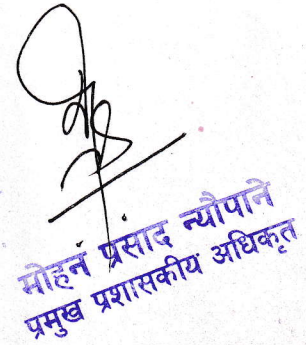 मोहन प्रसाद न्यौपाने
प्रमुख प्रशासकीय अधिकृत